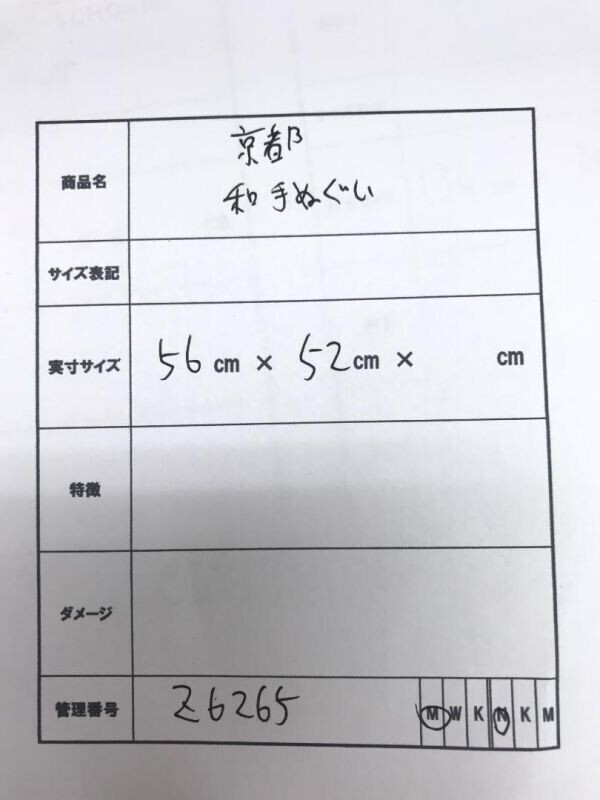 商品名
京都
和手ぬぐい
サイズ表記
実寸サイズ 56 cm × 52 cm × cm
特徴
ダメージ
管理番号 Z6265 M W K N K M